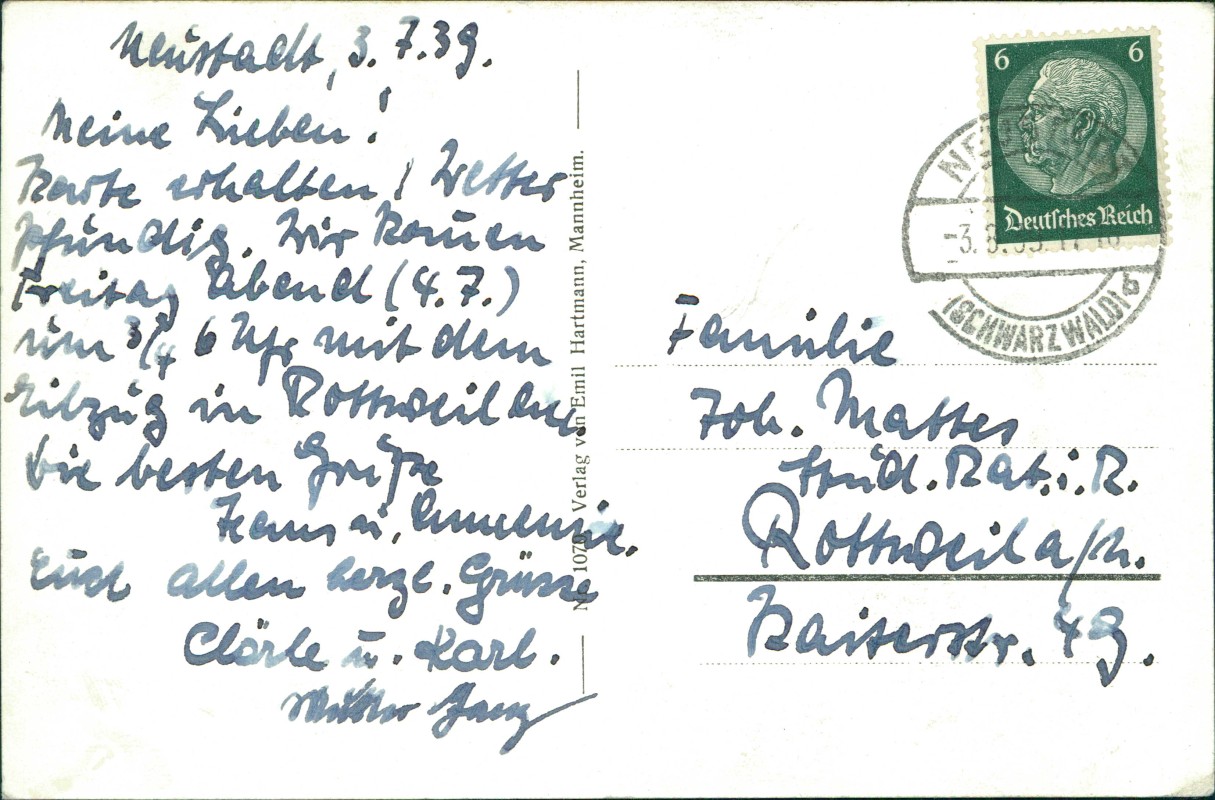 Neustadt, 3.7.39.
Meine Lieben!
Karte erhalten! Wetter
pfündig. Wir kom̅en
Freitag Abend (4.7.)
um 3/4 6 Uhr mit dem
Eilzug in Rottweil an.
Die besten Grüße
Hans u. Annemie.
Euch allen herzl. Grüsse
Clärle u. Karl.
Mutter
No 1070 Verlag von Emil Hartmann, Mannheim.
6 6
Deutsches Reich
-3.8.39.17-18
(SCHWARZWALD) b
Familie
Joh. Mattes
Stud. Rat. i. R.
Rottweil a/N.
Kaiserstr. 49.